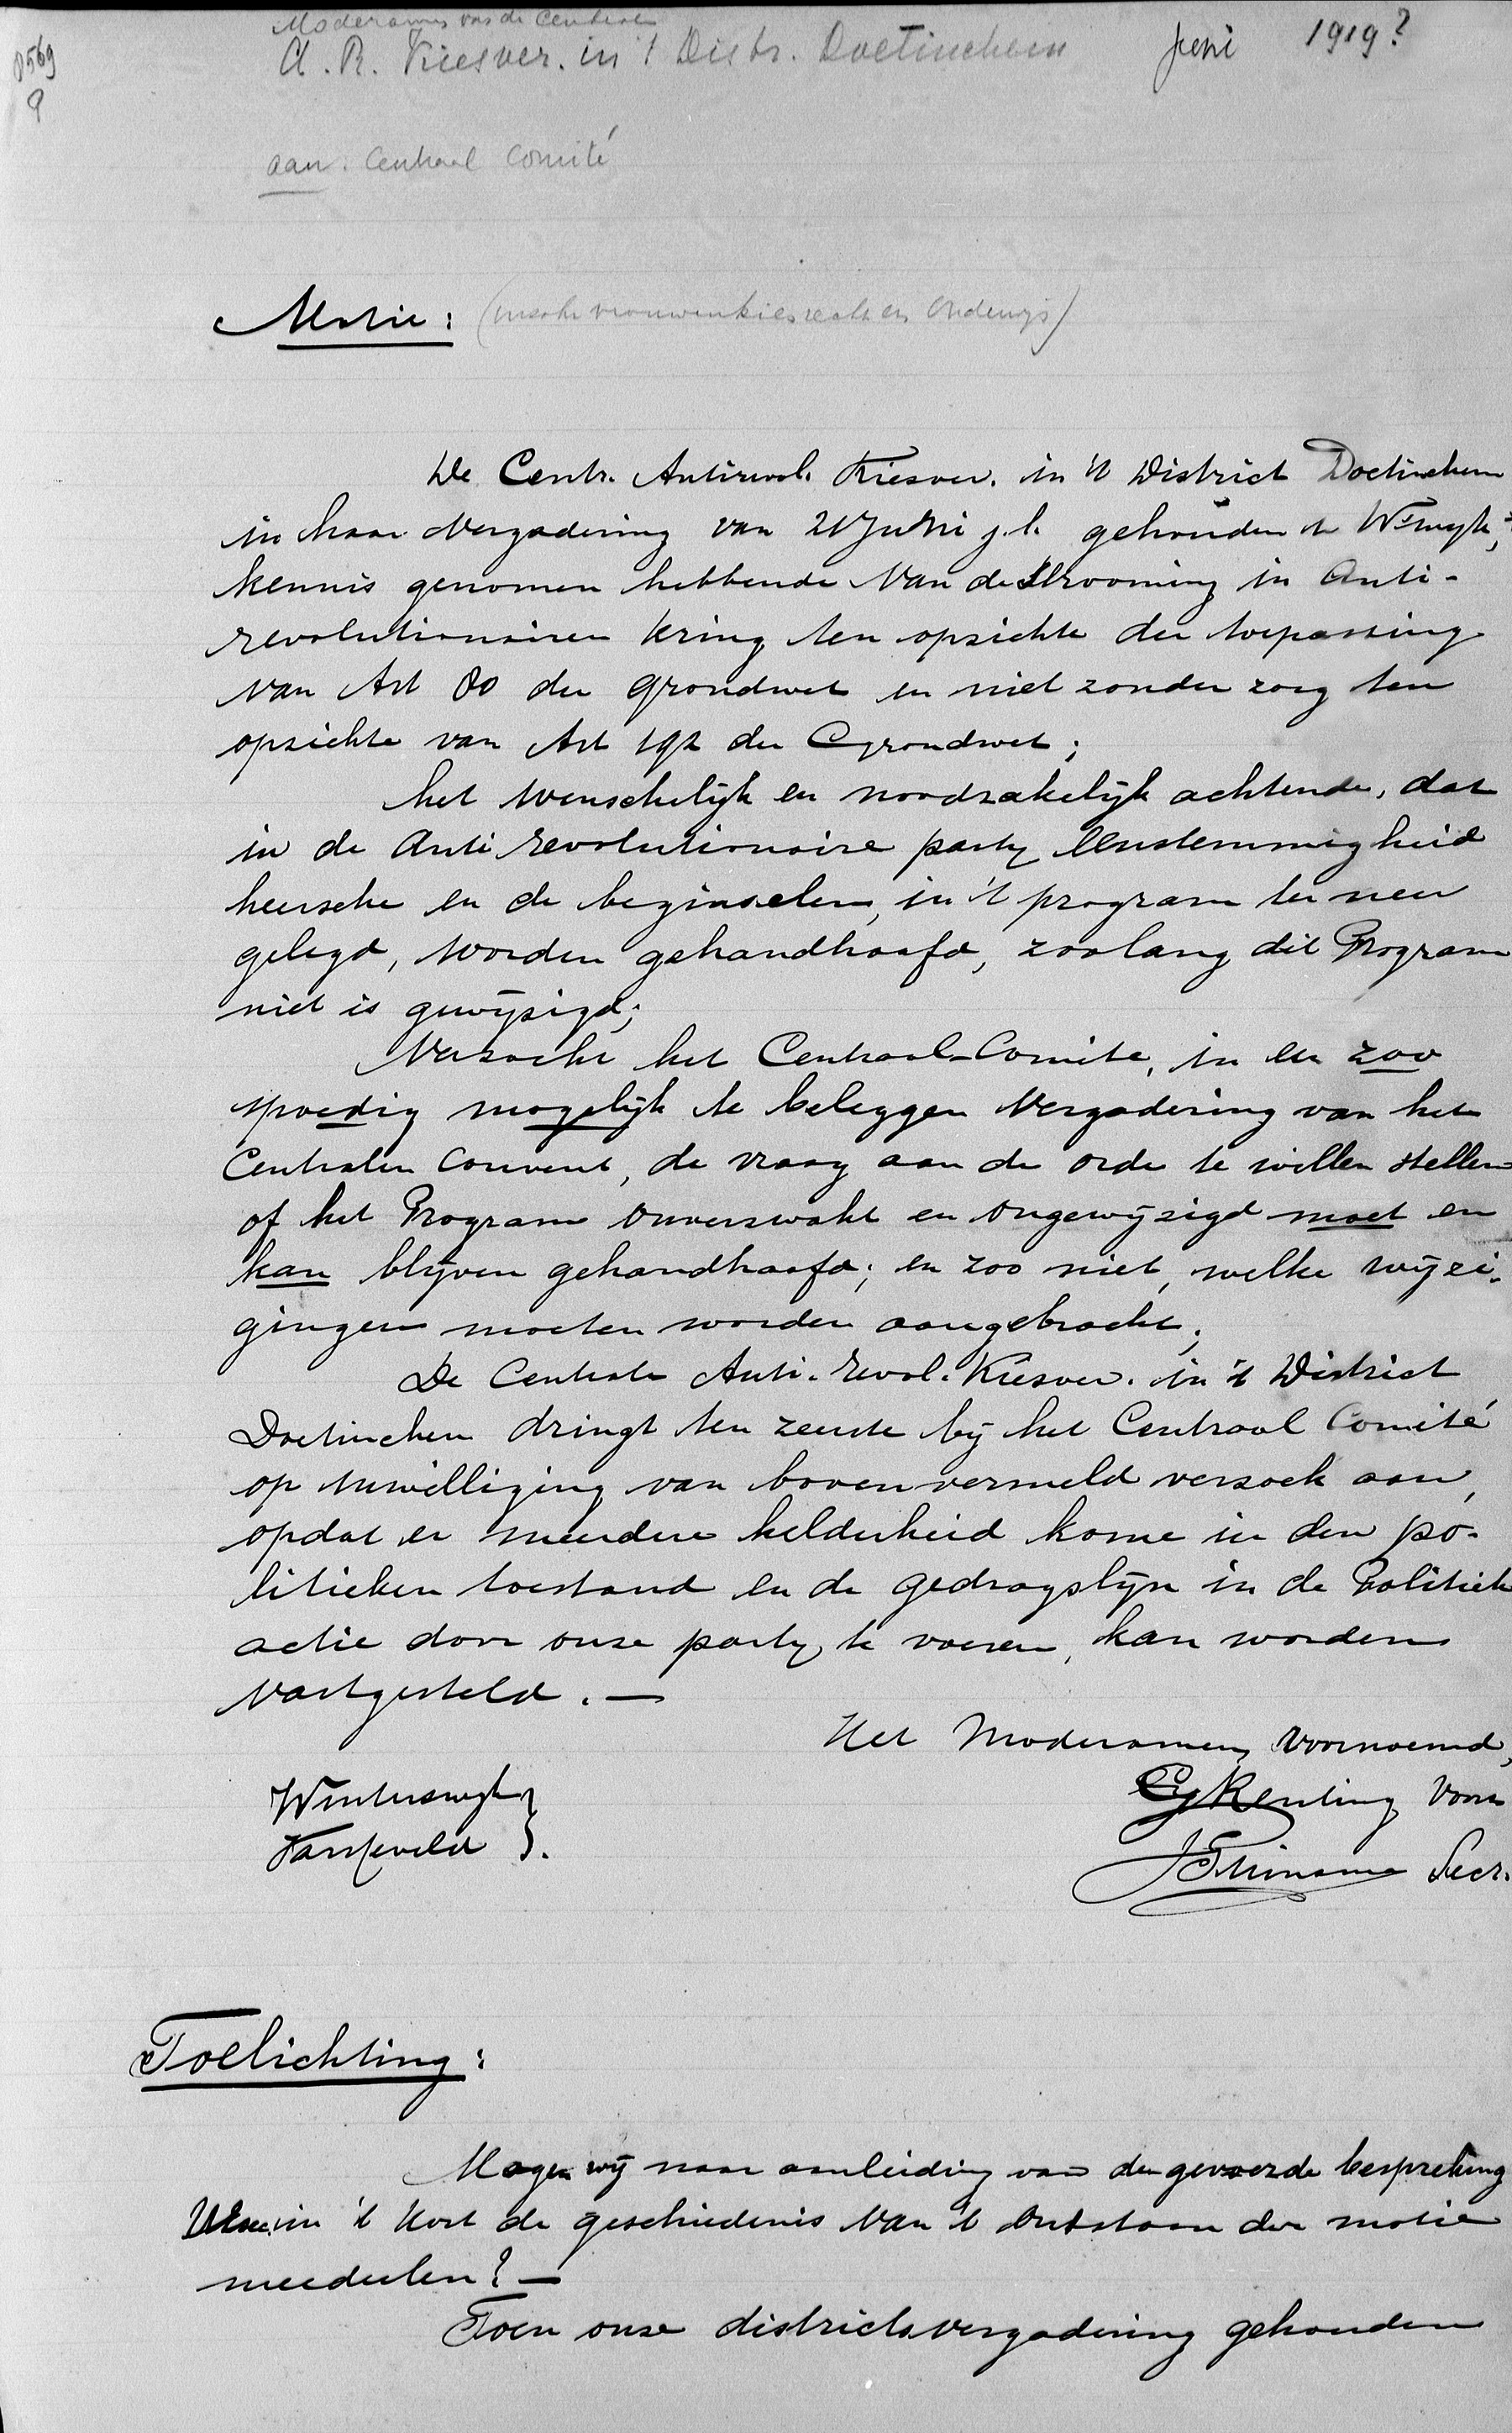 Moderamen van de Centrale
A. R. Kiesver. in 't Distr. Doetinchem juni 1919?
8569
9
aan. Centraal Comité
Motie: (inzake vrouwenkiesrecht en Onderwijs)
De Centr. Antirevol. Kiesver. in 't District Doetinchem
in haar Vergadering van 21 Juni j.l. gehouden te W'swyk,
kennis genomen hebbende van de Strooming in Anti-
revolutionairen kring ten opzichte der toepassing
van Art 80 der Grondwet en niet zonder zorg ten
opzichte van Art 192 der Grondwet;
het wenschelijk en noodzakelijk achtende, dat
in de Anti revolutionaire party Eenstemmigheid
heersche en de beginselen, in 't program ter neer
gelegd, worden gehandhaafd, zoolang dit Program
niet is gewijzigd;
Verzoekt het Centraal-Comite, in een zoo
spoedig mogelijk te beleggen Vergadering van het
Centralen Convent, de vraag aan de orde te willen stellen
of het Program onverzwakt en ongewijzigd moet en
kan blijven gehandhaafd; en zoo niet, welke wijzi-
gingen moeten worden aangebracht;
De Centrale Anti-revol. Kiesver. in 't District
Doetinchem dringt ten zeerste bij het Centraal Comité
op inwilliging van bovenvermeld verzoek aan,
opdat er meerdere helderheid kome in den po-
litieken toestand en de gedragslijn in de Politiek
actie door onze party te voeren, kan worden
vastgesteld. —
Het Moderamen, voornoemd,
Winterswyk } Renting Voorz
Varsseveld }. Secr.
Toelichting:
Mogen wij naar aanleiding van de gevoerde bespreking
in 't kort de geschiedenis van 't Ontstaan der motie
meedeelen? —
Toen onze districtsvergadering gehouden